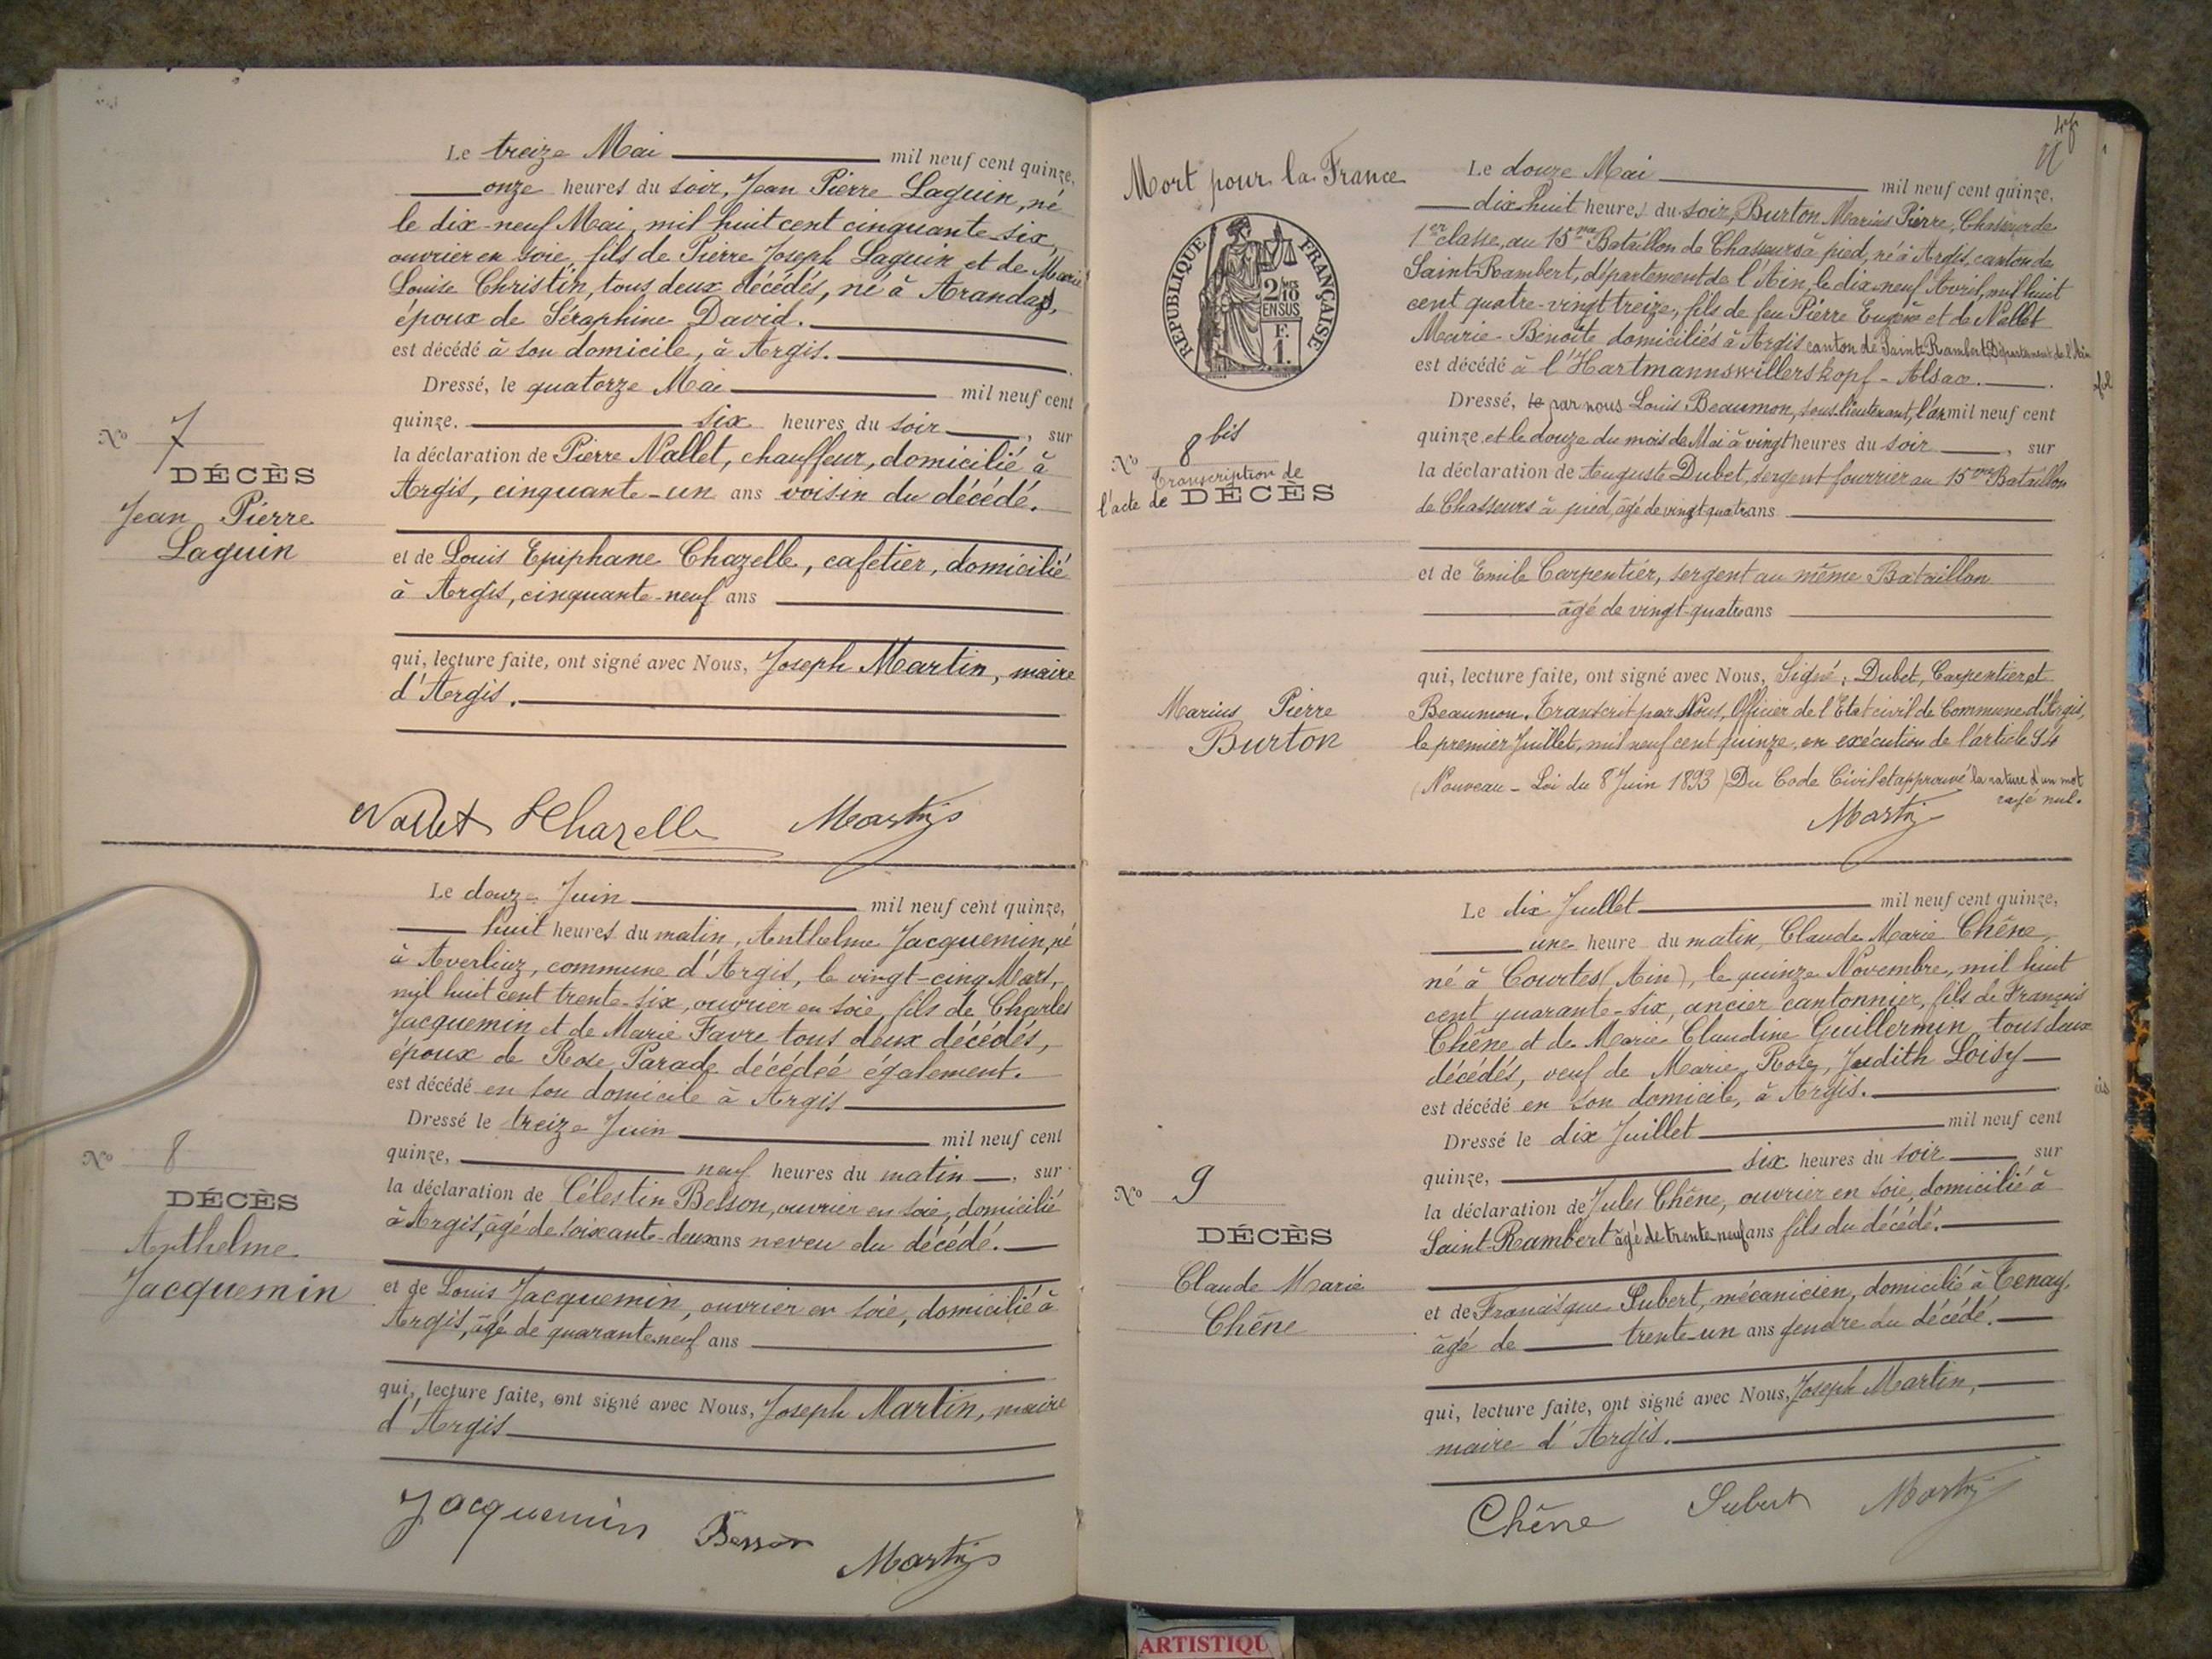 Le treize Mai mil neuf cent quinze,
onze heures du soir, Jean Pierre Laguin, né
le dix-neuf Mai, mil huit cent cinquante-six,
ouvrier en soie, fils de Pierre Joseph Laguin et de Marie
Louise Christin, tous deux décédés, né à Arandas,
époux de Séraphine David.
est décédé à son domicile, à Argis.
Dressé, le quatorze Mai mil neuf cent
quinze. six heures du soir, sur
la déclaration de Pierre Nallet, chauffeur, domicilié à
Argis, cinquante-un ans voisin du décédé.
et de Louis Epiphane Chazelle, cafetier, domicilié
à Argis, cinquante-neuf ans
qui, lecture faite, ont signé avec Nous, Joseph Martin, maire
d'Argis.
Nallet Chazelle Martin
No 7
DÉCÈS
Jean Pierre
Laguin
Le douze Juin mil neuf cent quinze,
huit heures du matin, Anthelme Jacquemin, né
à Averliaz, commune d'Argis, le vingt-cinq Mars,
mil huit cent trente-six, ouvrier en soie, fils de Charles
Jacquemin et de Marie Favre tous deux décédés,
époux de Rose Parade décédée également.
est décédé en son domicile à Argis
Dressé le treize Juin mil neuf cent
quinze, neuf heures du matin, sur
la déclaration de Célestin Besson, ouvrier en soie, domicilié
à Argis, âgé de soixante-deux ans neveu du décédé.
et de Louis Jacquemin, ouvrier en soie, domicilié à
Argis, âgé de quarante-neuf ans
qui, lecture faite, ont signé avec Nous, Joseph Martin, maire
d'Argis
Jacquemin Besson Martin
No 8
DÉCÈS
Anthelme
Jacquemin
Mort pour la France
RÉPUBLIQUE FRANÇAISE
2 10 EN SUS
F. 1.
No 8 bis
Transcription de
l'acte de DÉCÈS
Marius Pierre
Burton
Le douze Mai mil neuf cent quinze,
dix-huit heures du soir, Burton Marius Pierre, Chasseur de
1er classe, au 15me Bataillon de Chasseurs à pied, né à Argis, canton de
Saint-Rambert, département de l'Ain, le dix-neuf Avril, mil huit
cent quatre-vingt treize, fils de feu Pierre Eugène et de Nallet
Marie-Benoîte domiciliés à Argis canton de Saint-Rambert, Département de l'Ain
est décédé à l'Hartmannswillerskopf - Alsace.
Dressé, le par nous Louis Beaumon, sous-lieutenant, l'an mil neuf cent
quinze et le douze du mois de Mai à vingt heures du soir, sur
la déclaration de Auguste Dubet, sergent-fourrier au 15me Bataillon
de Chasseurs à pied, âgé de vingt-quatre ans
et de Emile Carpentier, sergent au même Bataillon
âgé de vingt-quatre ans
qui, lecture faite, ont signé avec Nous, Signé: Dubet, Carpentier et
Beaumon. Transcrit par Nous, Officier de l'Etat civil de Commune d'Argis,
le premier Juillet, mil neuf cent quinze, en exécution de l'article 94
(Nouveau - Loi du 8 Juin 1893) Du Code Civil et approuvé la rature d'un mot
rayé nul.
Martin
Le dix Juillet mil neuf cent quinze,
une heure du matin, Claude Marie Chêne,
né à Courtes (Ain), le quinze Novembre, mil huit
cent quarante-six, ancien cantonnier, fils de François
Chêne et de Marie Claudine Guillermin, tous deux
décédés, veuf de Marie, Rose, Judith Loisy
est décédé en son domicile, à Argis.
Dressé le dix Juillet mil neuf cent
quinze, six heures du soir, sur
la déclaration de Jules Chêne, ouvrier en soie, domicilié à
Saint-Rambert âgé de trente-neuf ans fils du décédé.
et de Francisque Subert, mécanicien, domicilié à Tenay,
âgé de trente-un ans gendre du décédé.
qui, lecture faite, ont signé avec Nous, Joseph Martin,
maire d'Argis.
Chêne Subert Martin
No 9
DÉCÈS
Claude Marie
Chêne
ARTISTIQU